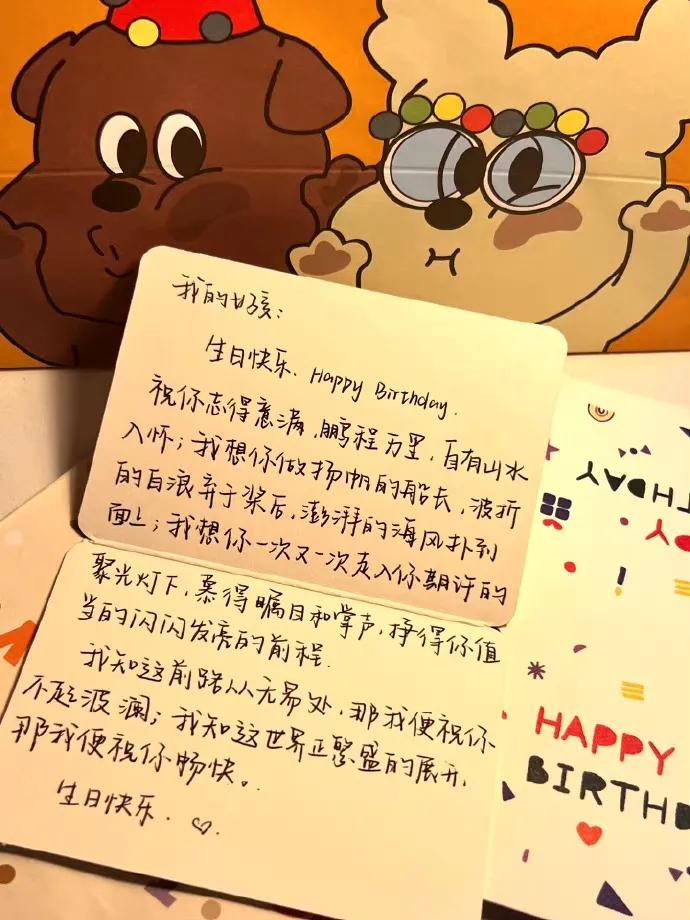 我的好孩：
生日快乐、Happy Birthday.
祝你志得意满，鹏程万里，自有山水
入怀；我想你做扬帆的船长，波折
的白浪弃于桨后，澎湃的海风扑到
面上；我想你一次又一次走入你期许的
聚光灯下，慕得瞩目和掌声，挣得你值
当的闪闪发亮的前程.
我知这前路从无易处，那我便祝你
不起波澜；我知这世界正繁盛的展开，
那我便祝你畅快。.
生日快乐. ♡.
THDAY
HAPPY
BIRTHD